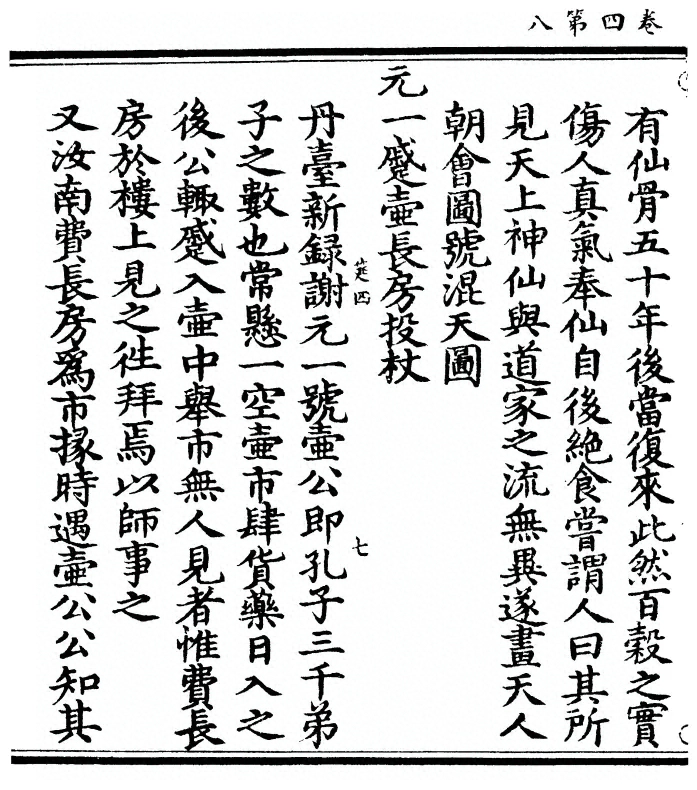 卷四第八
有仙骨五十年後當復來此然百穀之實
傷人真氣奉仙自後絶食嘗謂人曰其所
見天上神仙與道家之流無異遂畫天人
朝會圖號混天圖
元一蹙壺長房投杖
筵四
七
丹臺新録謝元一號壺公即孔子三千弟
子之數也常懸一空壺市肆貨藥日入之
後公輙蹙入壺中舉市無人見者惟費長
房於樓上見之徃拜焉以師事之
又汝南費長房爲市掾時遇壺公公知其